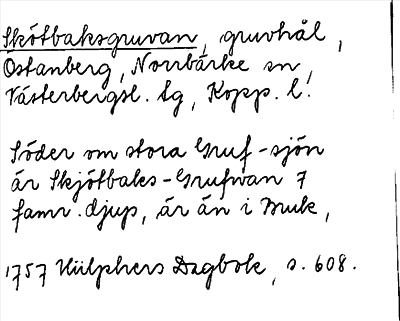 Skötbaksgruvan, gruvhål,
Östanberg, Norrbärke sn,
Västerbergsl. tg, Kopp. l.
Söder om stora Gruf-sjön
är Skjötbaks-Grufwan 7
famr. djup, är än i bruk,
1757 Hülphers Dagbok, s. 608.